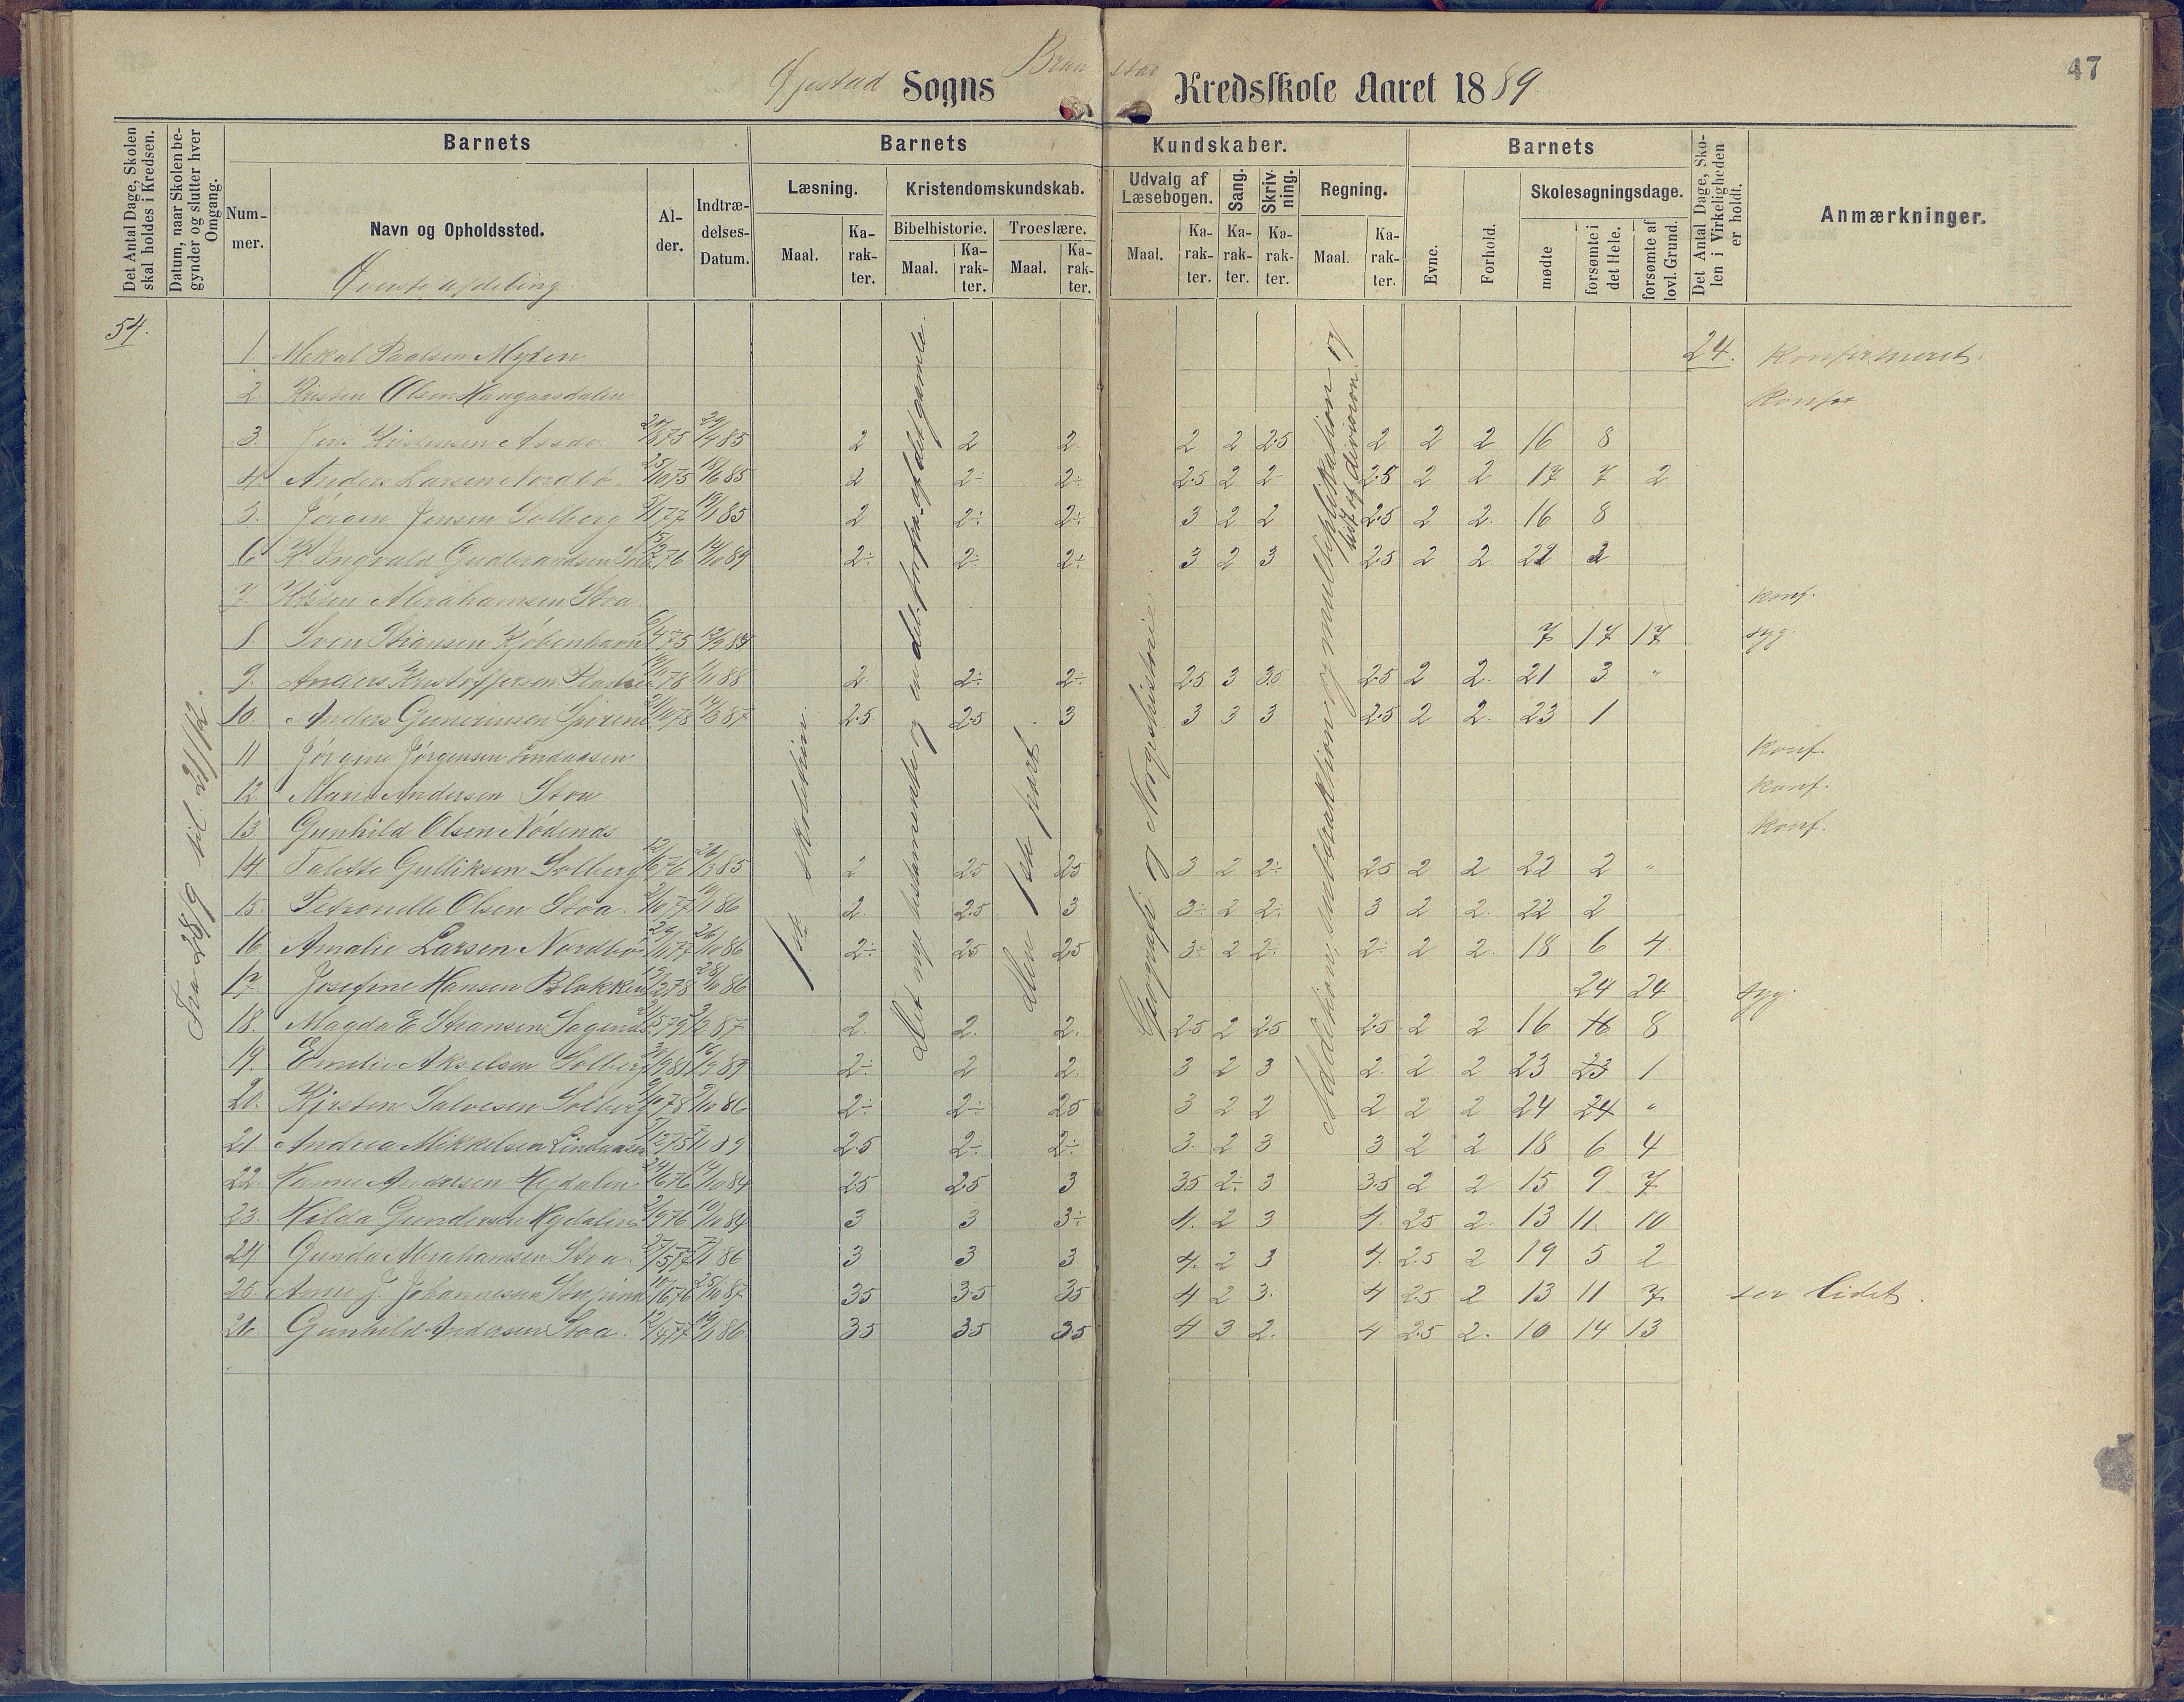 47
Øjestad Sogns Kredsskole Aaret 1889
Det Antal Dage, Skolen skal holdes i Kredsen.
Datum, naar Skolen begynder og slutter hver Omgang.
Barnets
Nummer.
Navn og Opholdssted.
Øverste afdeling.
Alder.
Indtrædelses-Datum.
Barnets Kundskaber.
Læsning.
Maal.
Karakter.
Kristendomskundskab.
Bibelhistorie.
Maal.
Karakter.
Troeslære.
Maal.
Karakter.
Udvalg af Læsebogen.
Maal.
Karakter.
Sang.
Karakter.
Skrivning.
Karakter.
Regning.
Maal.
Karakter.
Barnets
Evne.
Forhold.
Skolesøgningsdage.
mødte
forsømte i det Hele.
forsømte af lovl. Grund.
Det Antal Dage, Skolen i Virkeligheden er holdt.
Anmærkninger.
54.
Fra 28/9 til 21/12.
Det nye testamente og en del forfra af det gamle.
Den 1ste part
Geografi og Norgeshistorie
Addition, subtraktion og multiplikation og lidt af division.
1. Mikal Paalsen Myren 24. Konfirmeret.
2 Kristen Olsen Haugaasdalen Konf
3. Jens Kristensen 85 2 2 2. 2 2 2.5 2 2 2 16 8
4. Anders Larsen Nordbø. 25/10 75 18/6 85 2 2÷ 2÷ 2.5 2 2- 2.5 2 2 17 7 2
5. Jørgen Jensen Solberg 77 85 2 2÷ 2÷ 3 2 2 2.5 2 2. 16 8
6 K. Ingvald Gudbrandsen 76 14/10 84 2÷ 2÷ 2÷ 3 2 3 2.5 2 2 22 2
7. Abrahamsen Stoa. konf.
8. Sven Stiansen Kjøbenhavn 6/4 75 84 7 17 17 syg.
9. Anders Kristoffersen 78 88 2. 2÷ 2÷ 2.5 3 3.5 2.5 2 2. 21 3 "
10. Anders Gunerius 78 87 2.5 2.5 3 3 3 3 2.5 2 2. 23 1
11 Jørgine Jørgensen Lindaasen Konf.
12. Marie Andersen Stoa konf.
13. Gunhild Olsen Nødenes konf.
14. Talette Gulliksen Solberg 12/6 76 85 2 25 25 3 2 2÷ 25 2 2 22 2 "
15. Petronelle Olsen Stoa. 77 86 2 2.5 3 3÷ 2 2÷ 3 2 2. 22 2
16. Amalie Larsen Nordbø 77 26/10 86 2÷ 25 25 3÷ 2 2÷ 2÷ 2 2. 18 6 4.
17. Josefine Hansen Blakken 78 28/10 86 24 24 syg.
18. Magda E Stiansen Sagend 79 87 2. 2. 2. 2.5 2 2.5 2.5 2 2 16 16 8
19. Emilie Akselsen Solberg 89 2÷ 2 2. 3 2 3 2. 2 2 23 23 1
20. Kirsten Salvesen Solberg 78 86 2÷ 2÷ 25 3 2 2 2 2 2 24 24 "
21. Andrea Mikkelsen Lindaasen 75 89 2.5 2÷ 2÷ 3. 2 3 3 2 2 18 6 4
22. Hanne Andersen Mydalen 24/6 76 14/10 84 2.5 2.5 3 3.5 2÷ 3 3.5 2 2 15 9 7
23. Hilda Gundersen Mydalen 76 84 3 3 3÷ 4. 2 3 4. 25 2. 13 11. 10
24 Gunda Abrahamsen Stoa. 77 86 3 3 3 4. 2 3 4. 2.5 2 19 5 2
25. Anne J. Johannessen 76 25/10 87 35 3.5 35 4 2 3. 4 25 2 13 11 7 ser lidet.
26. Gunhild Andersen Stoa. 12/4 77 86 35 35 35 4 3 2. 4 2.5 2. 10 14 13